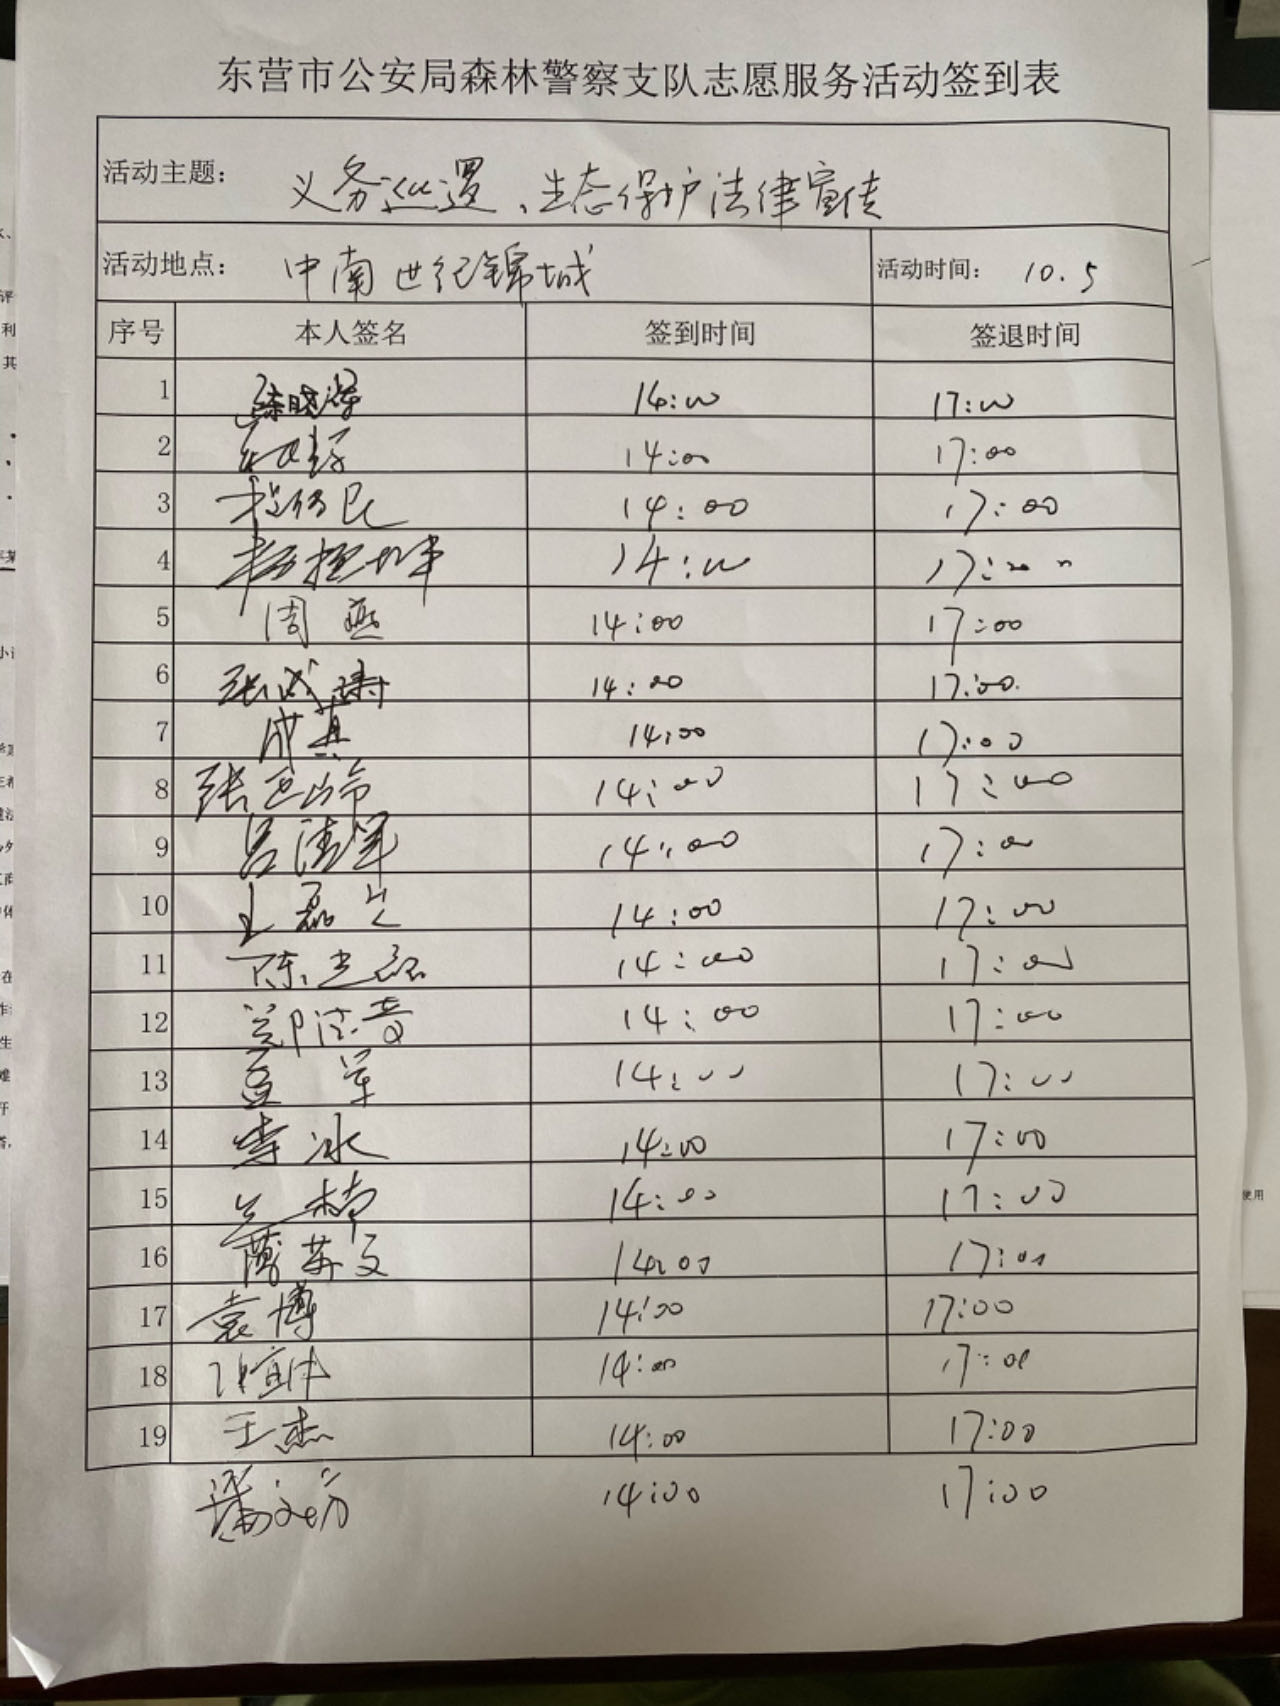 东营市公安局森林警察支队志愿服务活动签到表
活动主题: 义务巡逻、生态保护法律宣传
活动地点: 中南世纪锦城 活动时间: 10.5
序号 本人签名 签到时间 签退时间
1 14:00 17:00
2 14:00 17:00
3 14:00 17:00
4 14:00 17:00
5 周燕 14:00 17:00
6 张成 14:00 17:00
7 成真 14:00 17:00
8 张 14:00 17:00
9 吕清军 14:00 17:00
10 王磊 14:00 17:00
11 陈志 14:00 17:00
12 郑 14:00 17:00
13 军 14:00 17:00
14 李冰 14:00 17:00
15 兰楠 14:00 17:00
16 蔺英文 14:00 17:00
17 袁博 14:00 17:00
18 14:00 17:00
19 王杰 14:00 17:00
潘文芳 14:00 17:00